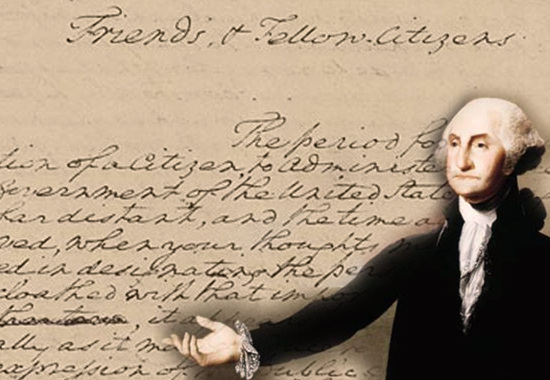 Friends, & Fellow-Citizens
The period fo
tion of a Citizen, to administe
Government of the United Stat
far distant, and the time a
ved, when your thoughts
ed in designating the per
cloathed with that impo
it appea
ally as it m
expression of public